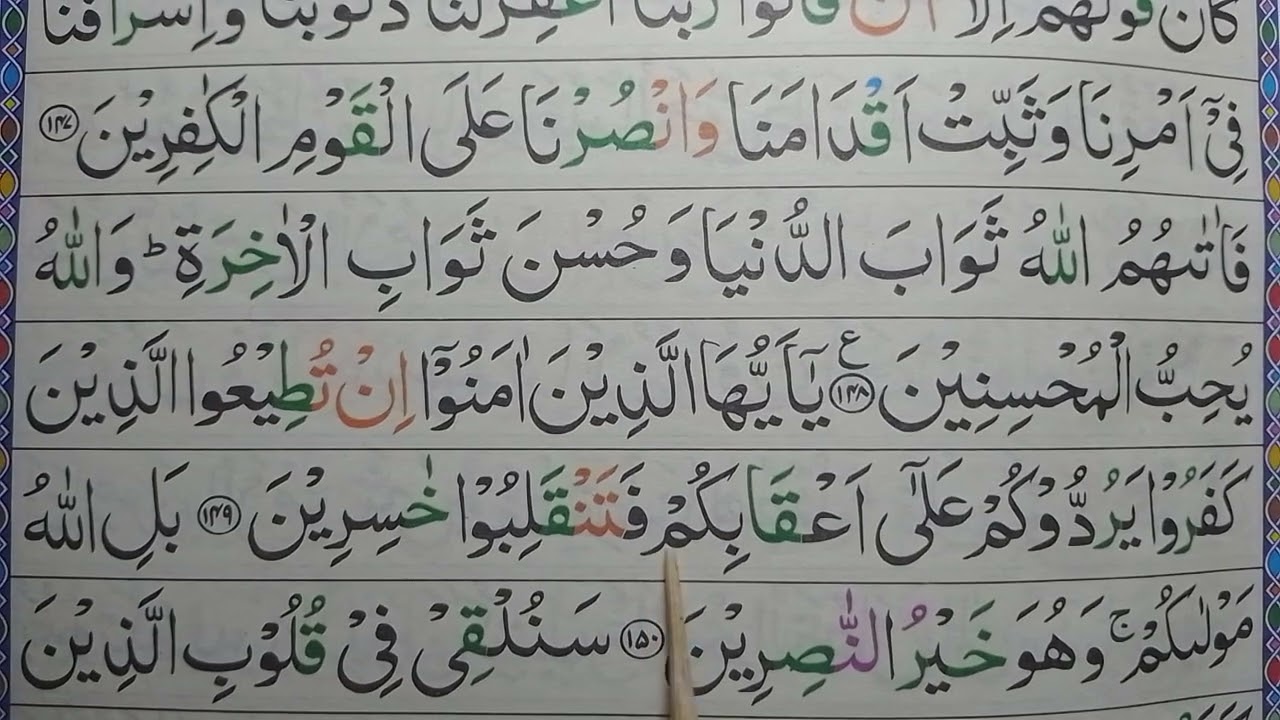 كَانَ قَوْلَهُمْ اِلَّاۤ اَنْ قَالُوْا رَبَّنَا اغْفِرْ لَنَا ذُنُوْبَنَا وَاِسْرَافَنَا
فِيْۤ اَمْرِنَا وَثَبِّتْ اَقْدَامَنَا وَانْصُرْنَا عَلَى الْقَوْمِ الْكٰفِرِيْنَ ۝۱۴۷
فَاٰتٰىهُمُ اللّٰهُ ثَوَابَ الدُّنْيَا وَحُسْنَ ثَوَابِ الْاٰخِرَةِ ؕ وَاللّٰهُ
يُحِبُّ الْمُحْسِنِيْنَ ۝۱۴۸ ع يٰۤاَيُّهَا الَّذِيْنَ اٰمَنُوْۤا اِنْ تُطِيْعُوا الَّذِيْنَ
كَفَرُوْا يَرُدُّوْكُمْ عَلٰۤى اَعْقَابِكُمْ فَتَنْقَلِبُوْا خٰسِرِيْنَ ۝۱۴۹ بَلِ اللّٰهُ
مَوْلٰىكُمْ ۚ وَهُوَ خَيْرُ النّٰصِرِيْنَ ۝۱۵۰ سَنُلْقِيْ فِيْ قُلُوْبِ الَّذِيْنَ